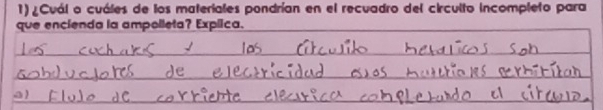 1) ¿Cuál o cuáles de los materiales pondrían en el recuadro del circuito incompleto para
que encienda la ampolleta? Explica.
las cucharas y los circulito metalicos son
conductores de electricidad estos materiales permitiran
el flujo de corriente electrica completando el circuito.